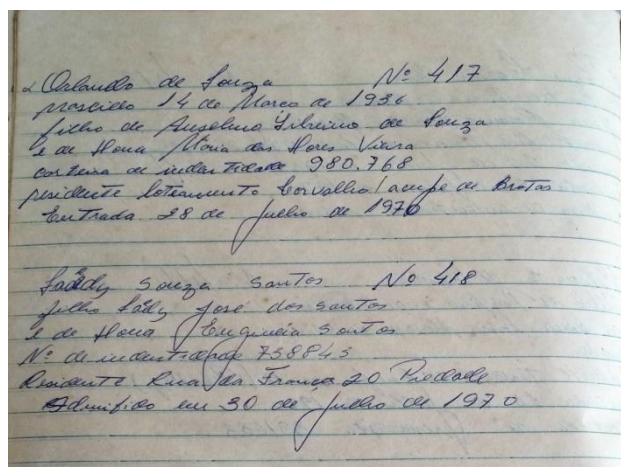 Orlando de Souza Nº 417
nascido 14 de Março de 1936
filho de Anselmo Silvino de Souza
e de Dona Maria das Flores Vieira
carteira de indentidade 980.768
residente loteamento Carvalho Campo de Brotas
Entrada 28 de Julho de 1970
Souza Santos Nº 418
filho José dos Santos
e de Dona Santos
Nº de indentidade 738843
Residente Rua da França 20 Piedade
Admitido em 30 de Julho de 1970